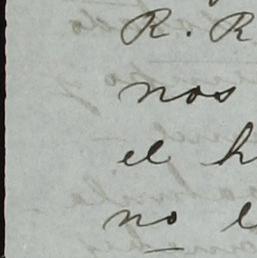 R. R
nos
el h
no l